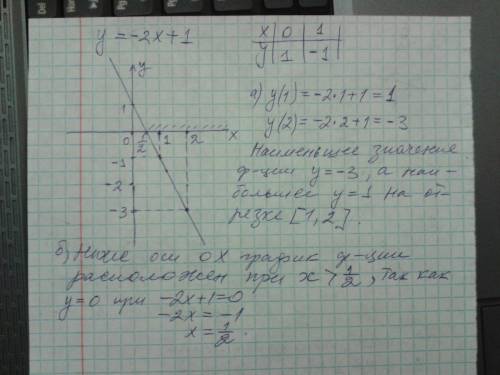 y = -2x+1
x | 0 | 1
y | 1 | -1
y
1
0 1/2 1 2 x
-1
-2
-3
а) y(1) = -2·1+1 = 1
y(2) = -2·2+1 = -3
Наименьшее значение
ф-ции y=-3, а наи-
большее y=1 на от-
резке [1,2].
б) Ниже оси OX график ф-ции
расположен при x > 1/2, так как
y=0 при -2x+1=0
-2x = -1
x = 1/2.